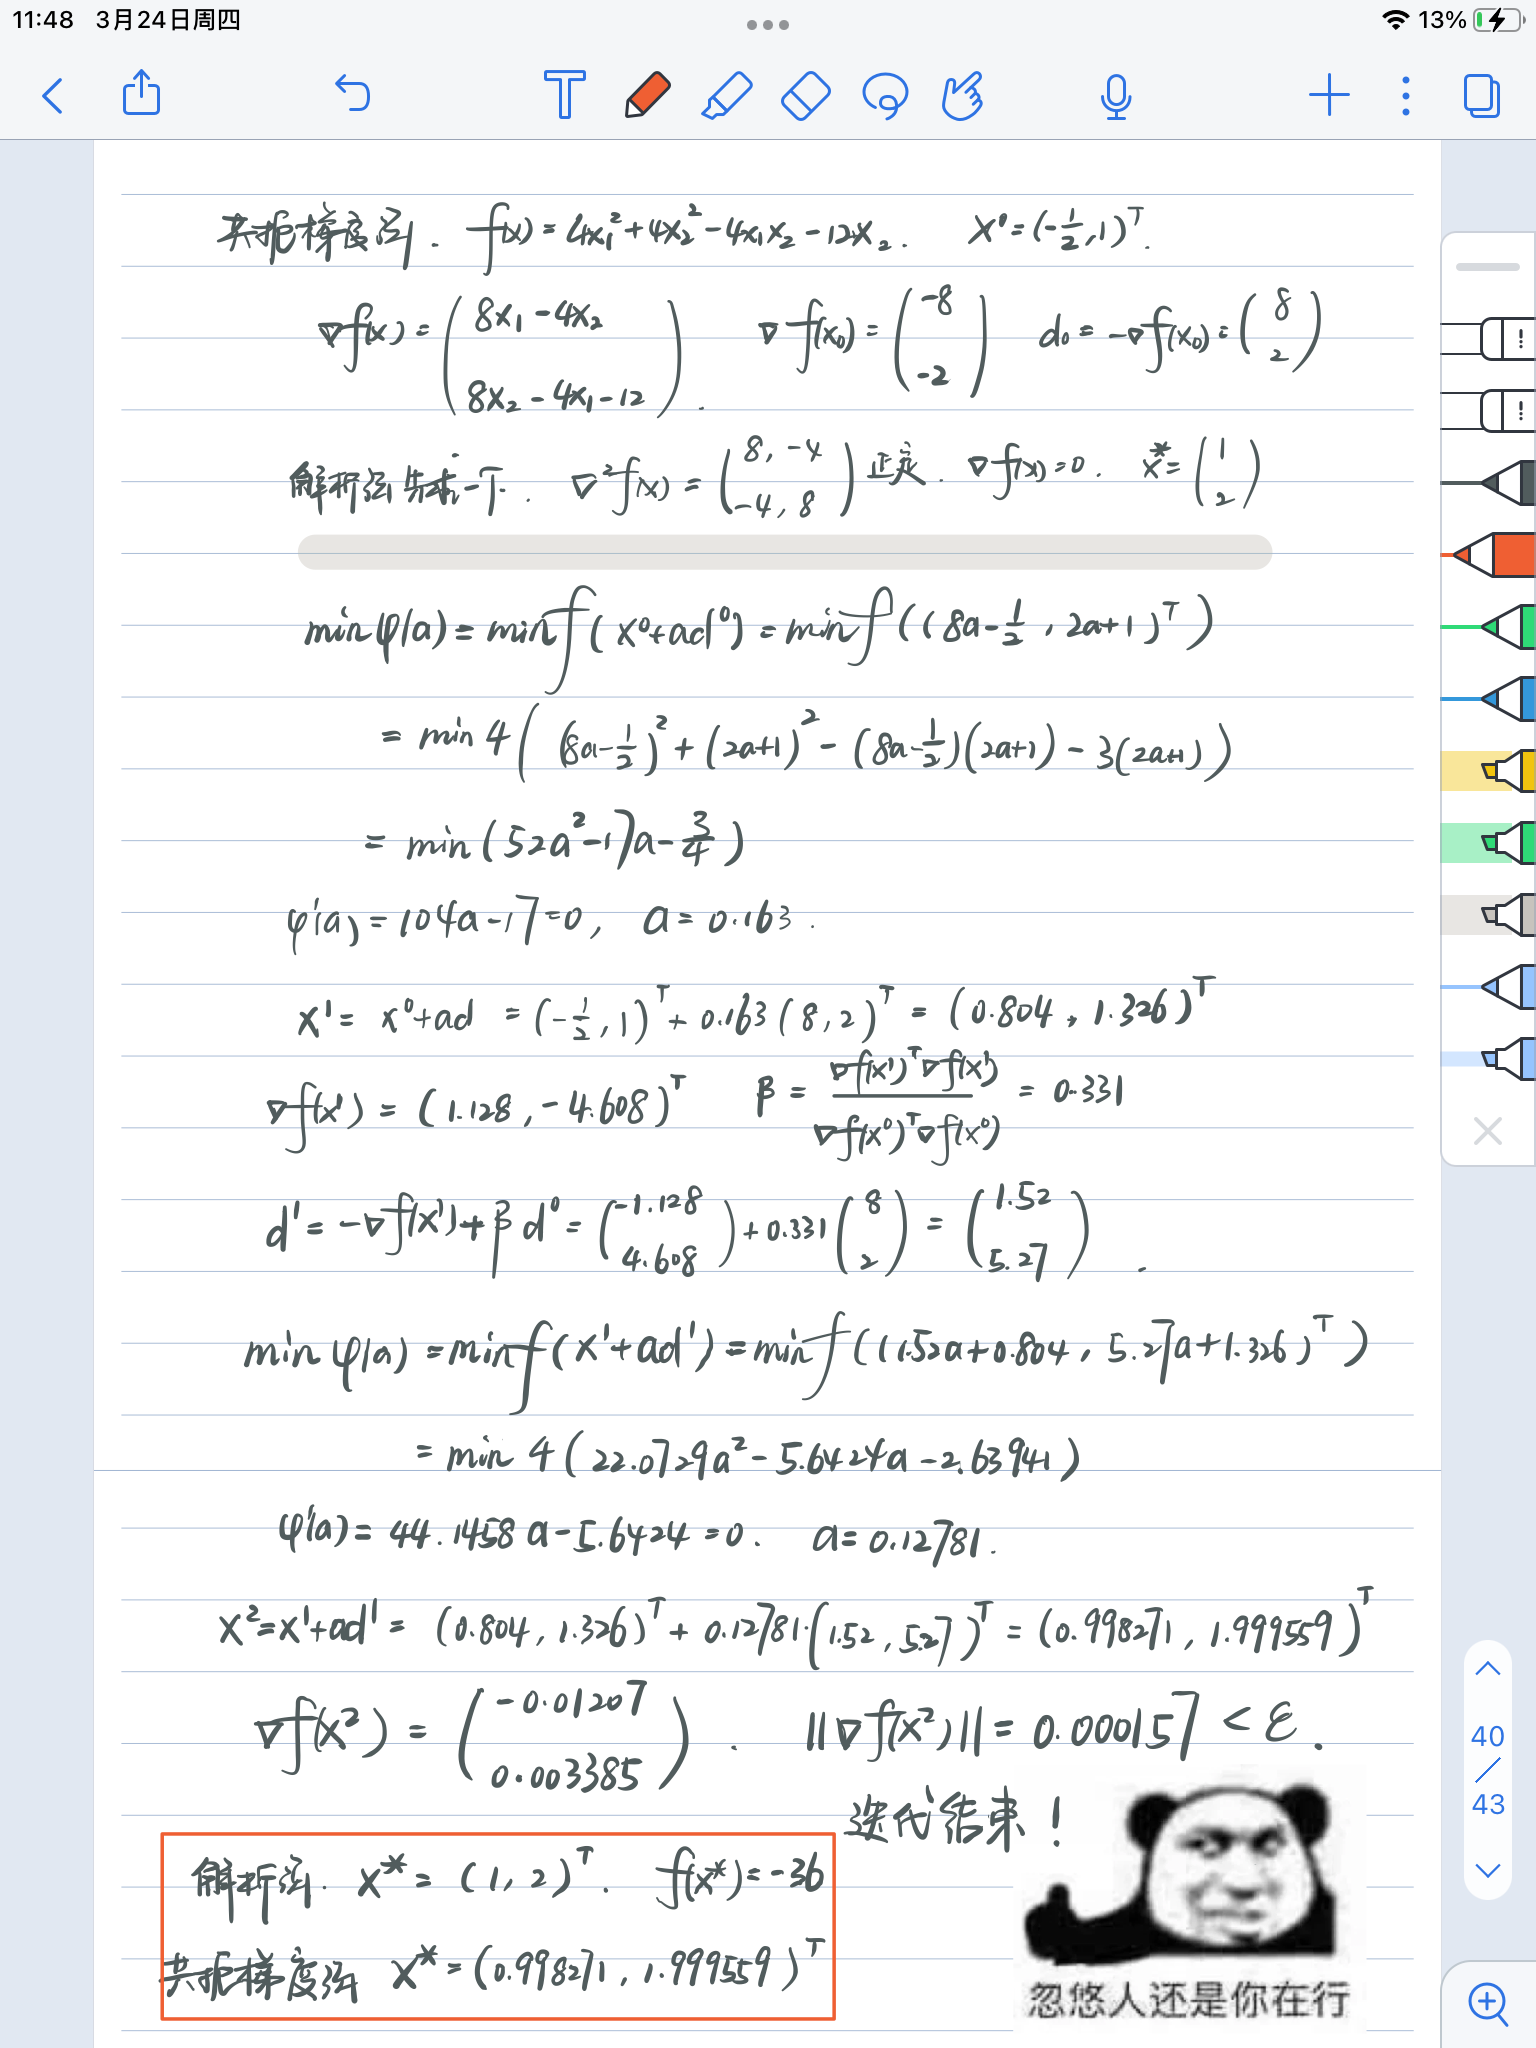 11:48 3月24日周四 13%
共轭梯度法. f(x)=4x₁²+4x₂²-4x₁x₂-12x₂. x⁰=(-1/2,1)ᵀ.
∇f(x)=(8x₁-4x₂ 8x₂-4x₁-12). ∇f(x₀)=(-8 -2) d₀=-∇f(x₀)=(8 2)
解析法先求一下. ∇²f(x)=(8,-4 -4,8)正定. ∇f(x)=0. x*=(1 2)
minφ(a)=minf(x⁰+ad⁰)=minf((8a-1/2,2a+1)ᵀ)
=min4((8a-1/2)²+(2a+1)²-(8a-1/2)(2a+1)-3(2a+1))
=min(52a²-17a-3/4)
φ'(a)=104a-17=0, a=0.163.
x¹=x⁰+ad=(-1/2,1)ᵀ+0.163(8,2)ᵀ=(0.804,1.326)ᵀ
∇f(x¹)=(1.128,-4.608)ᵀ β=∇f(x¹)ᵀ∇f(x¹)/∇f(x⁰)ᵀ∇f(x⁰)=0.331
d¹=-∇f(x¹)+βd⁰=(-1.128 4.608)+0.331(8 2)=(1.52 5.27).
minφ(a)=minf(x¹+ad¹)=minf((1.52a+0.804,5.27a+1.326)ᵀ)
=min4(22.0729a²-5.6424a-2.63941)
φ'(a)=44.1458a-5.6424=0. a=0.12781.
x²=x¹+ad¹=(0.804,1.326)ᵀ+0.12781·(1.52,5.27)ᵀ=(0.998271,1.999559)ᵀ
∇f(x²)=(-0.01207 0.003385). ||∇f(x²)||=0.000157<ε.
迭代结束!
解析法. x*=(1,2)ᵀ. f(x*)=-36
共轭梯度法 x*=(0.998271,1.999559)ᵀ
忽悠人还是你在行
40
/
43